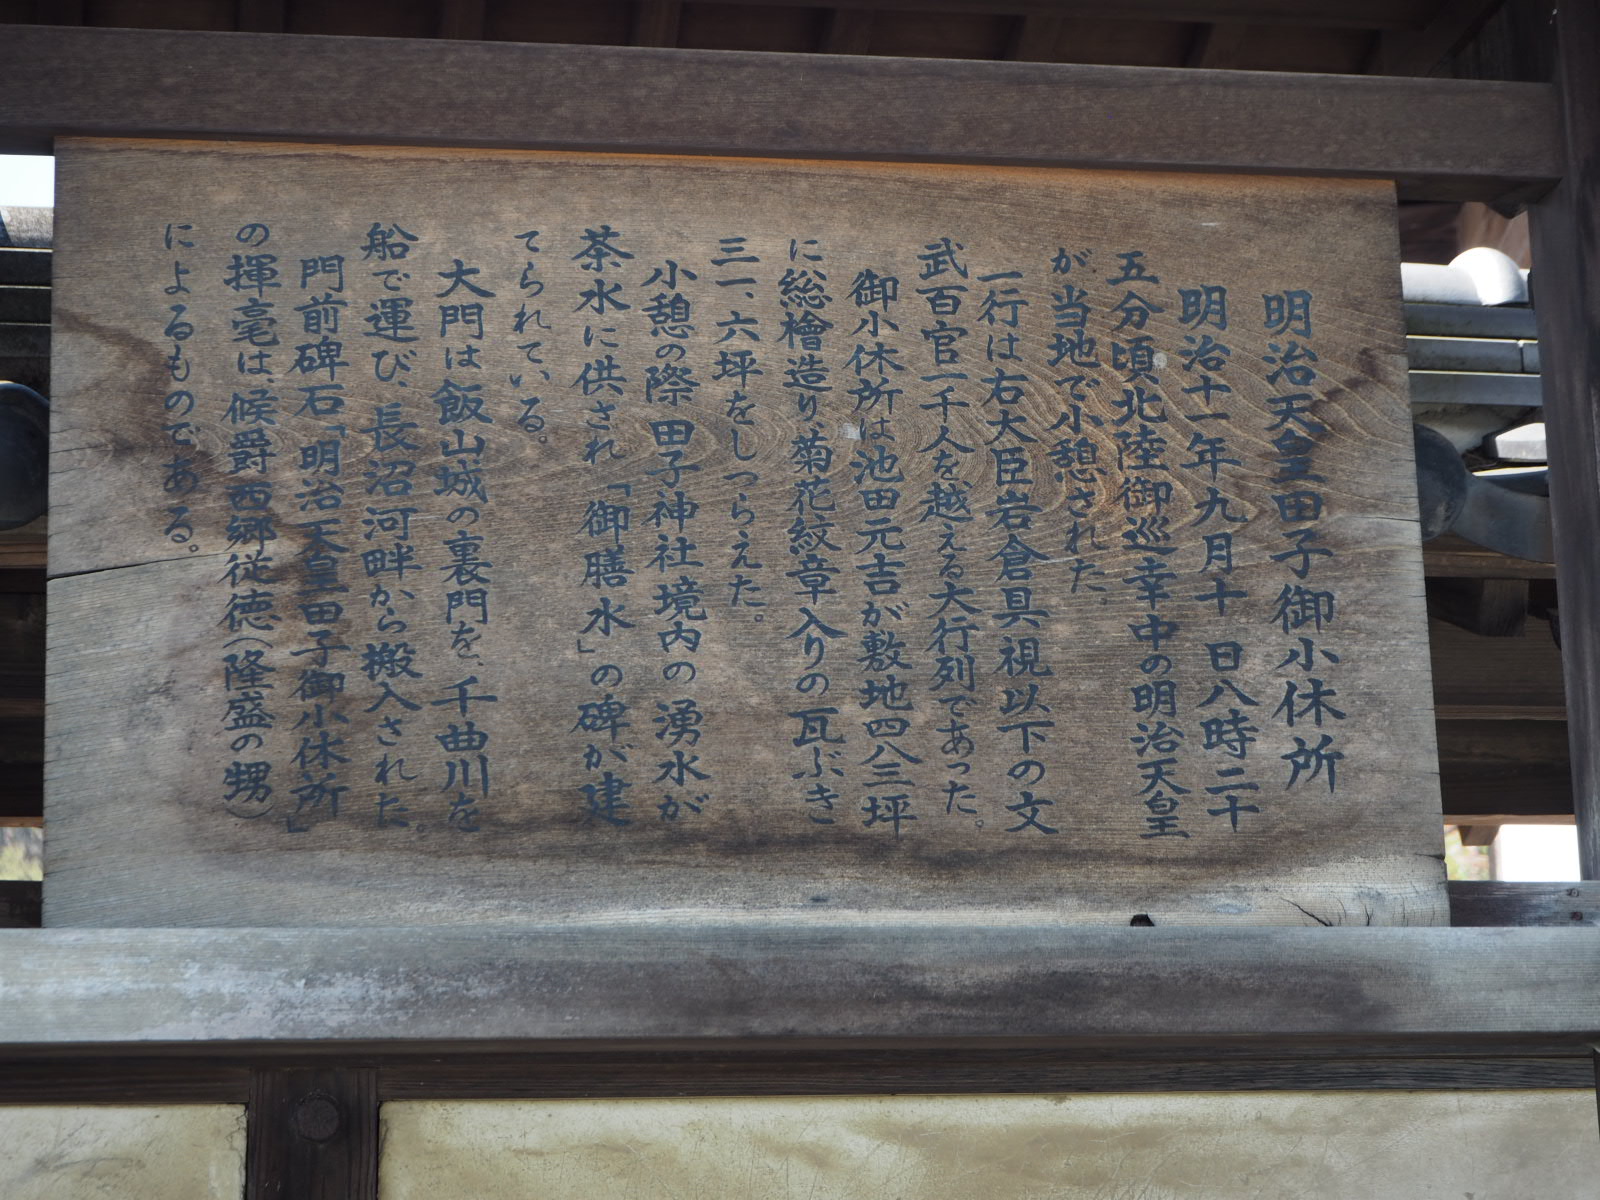 明治天皇田子御小休所
明治十一年九月十日八時二十
五分頃、北陸御巡幸中の明治天皇
が、当地で小憩された。
一行は右大臣岩倉具視以下の文
武百官一千人を越える大行列であった。
御小休所は池田元吉が敷地四八三坪
に総檜造り、菊花紋章入りの瓦ぶき
三一、六坪をしつらえた。
小憩の際田子神社境内の湧水が
茶水に供され「御膳水」の碑が建
てられている。
大門は飯山城の裏門を、千曲川を
船で運び、長沼河畔から搬入された。
門前碑石「明治天皇田子御小休所」
の揮毫は、候爵西郷従徳（隆盛の甥）
によるものである。